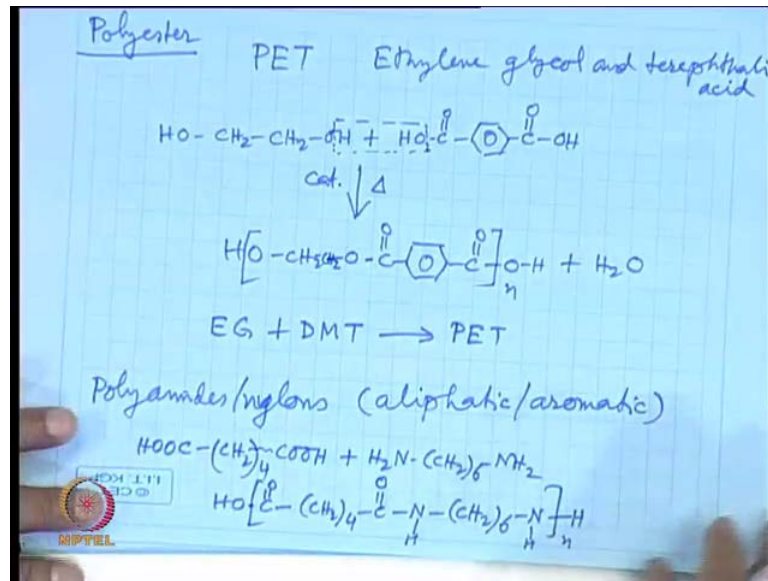 Polyester
PET Ethylene glycol and terephthalic
acid
HO- CH2-CH2-OH + HO-C-⌬-C-OH
O O
Cat. ↓ Δ
O O
H[O-CH2CH2O-C-⌬-C]n O-H + H2O
EG + DMT → PET
Polyamides/nylons (aliphatic/aromatic)
HOOC-(CH2)4-COOH + H2N-(CH2)6 NH2
O O
HO[C-(CH2)4-C-N-(CH2)6-N]n H
H H
© CE
I.I.T. KGP
NPTEL